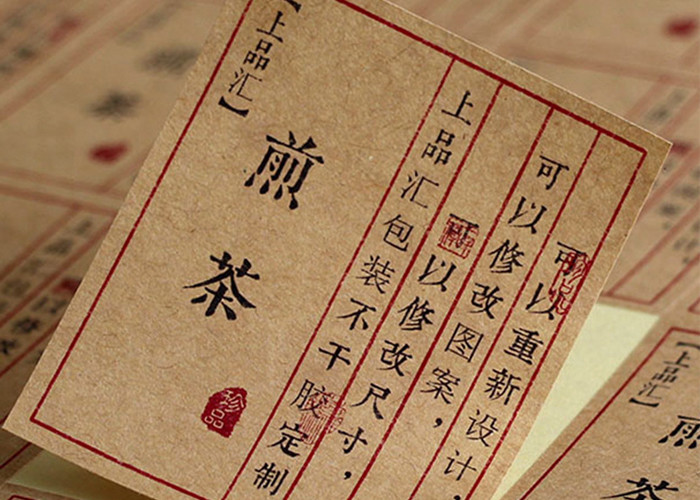 【上品汇】
煎茶
珍品
上品汇包装不干胶定制
可以修改尺寸，
可以修改图案，
可以重新设计，
上品汇】
煎茶